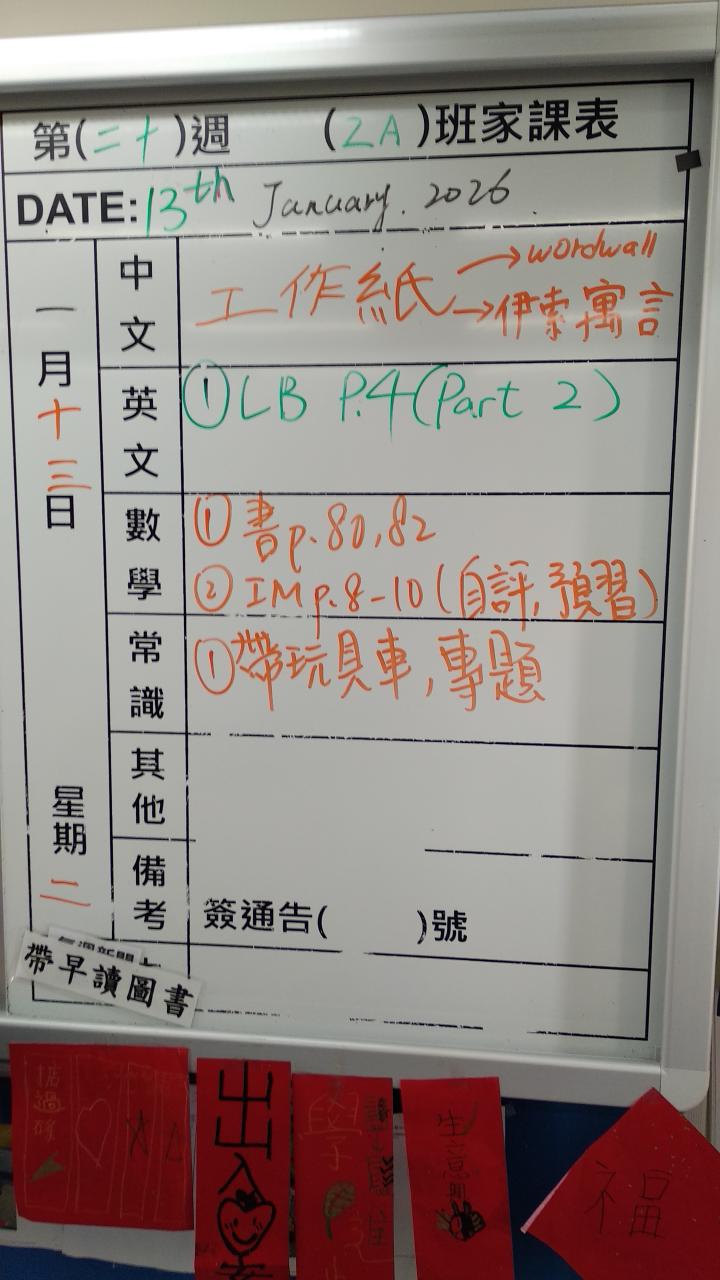 第(二十)週 (2A)班家課表
DATE: 13th January. 2026
一月十三日
星期二
中文
工作紙 → wordwall
→ 伊索寓言
英文
① LB P.4 (Part 2)
數學
① 書p.80,82
② IM p.8-10 (自評,預習)
常識
① 帶玩具車,專題
其他
備考
簽通告( )號
帶早讀圖書
出入
學
生意興
福